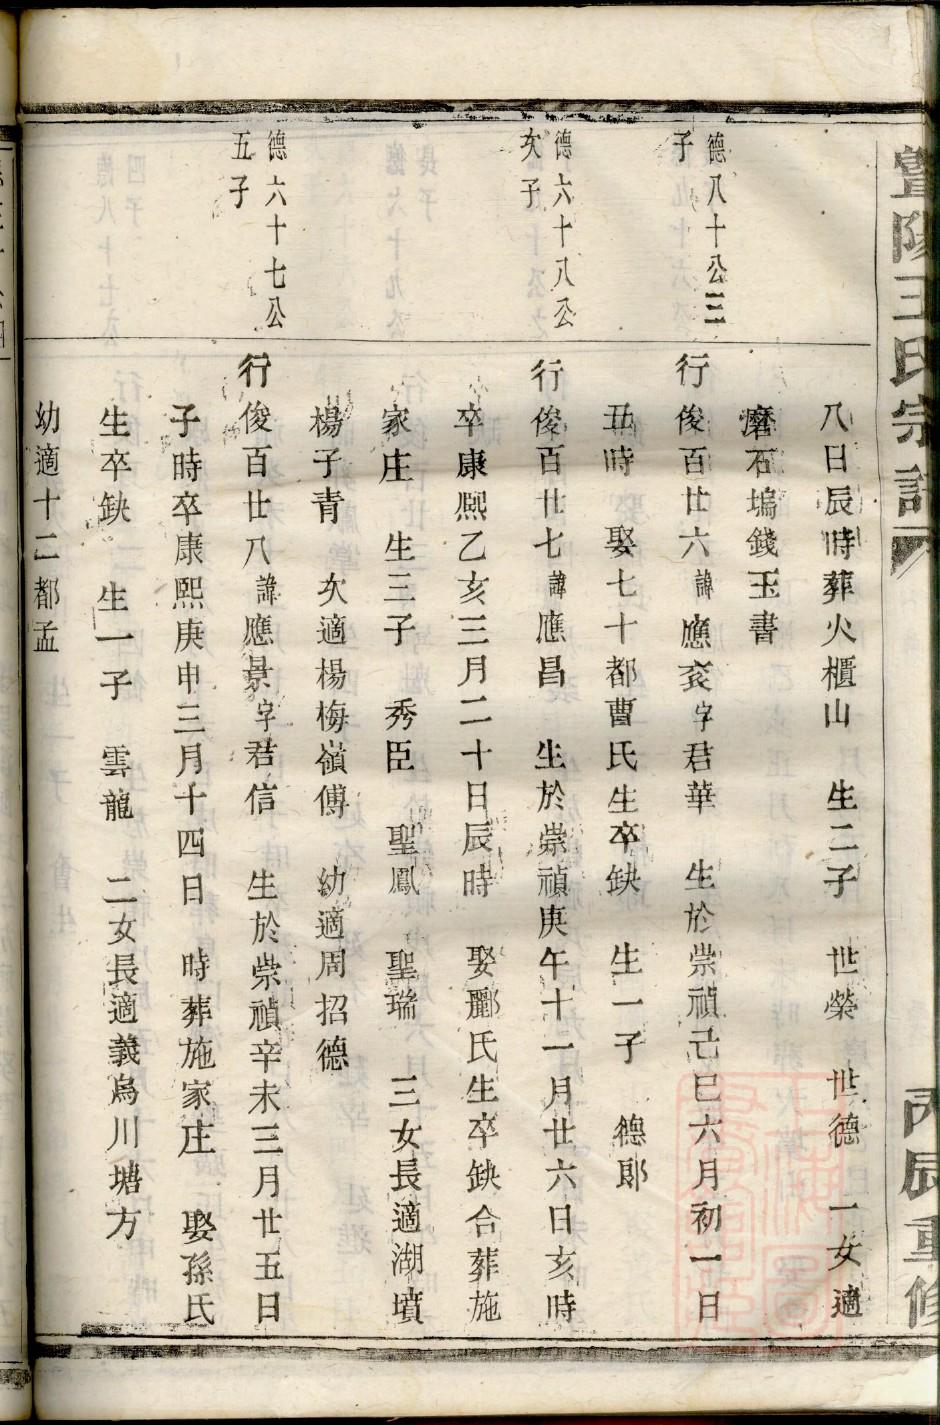 暨陽王氏宗譜
丙辰重修
八日辰時葬火櫃山 生二子 世榮 世德 一女適
磨石塢錢玉書
德八十公三
子
行俊百廿六諱應袞字君華 生於崇禎己巳六月初一日
丑時 娶七十都曹氏生卒缺 生一子 德郎
德六十八公
次子
行俊百廿七諱應昌 生於崇禎庚午十一月廿六日亥時
卒康熙乙亥三月二十日辰時 娶酈氏生卒缺合葬施
家庄 生三子 秀臣 聖鳳 聖瑞 三女長適湖墳
楊子青 次適楊梅嶺傅 幼適周招德
德六十七公
五子
行俊百廿八諱應景字君信 生於崇禎辛未三月廿五日
子時卒康熙庚申三月十四日 時葬施家庄 娶孫氏
生卒缺 生一子 雲龍 二女長適義烏川塘方
幼適十二都孟